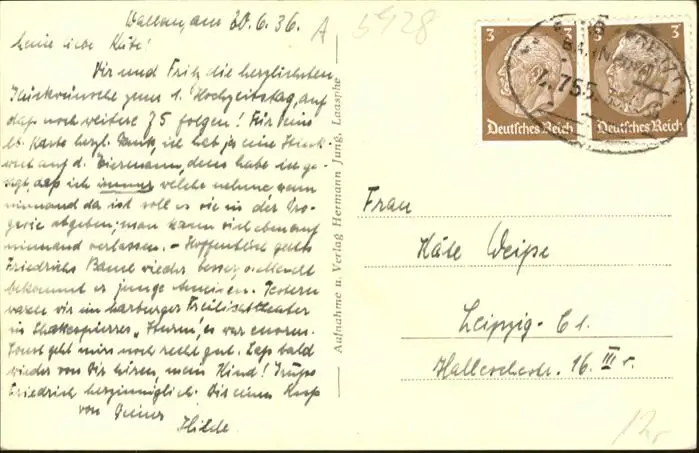 30.6.36.
Meine liebe Käte!
Dir und Fritz die herzlichsten
Glückwünsche zum 1. Hochzeitstag, auf
daß noch weitere 75 folgen! Für Deine
lb. Karte herzl. Dank, ich hab ja eine
auf d. denn habe ihr ge-
sagt, daß ich immer welche nehme, wenn
niemand da ist soll es sie in der Dro-
gerie abgeben; man kann sich eben auf
niemand verlassen. – Hoffentlich geht's
Friedrichs wieder besser
bekommt er junge Gestern
waren wir im Marburger Freilichttheater
in Shakespeares „Sturm", es war enorm.
Sonst geht mirs noch recht gut. Laß bald
wieder von Dir hören, mein Kind! Grüße
Friedrich herzinniglich. Dir einen Kuß
von Deiner
Hilde.
A
5928
Aufnahme u. Verlag Hermann Jung, Laasphe
3 3
3
Deutsches Reich
Deutsches Reich
BAHNPOST
Z. 755
Frau
Käte Weiße
Leipzig - C 1.
16. III r.